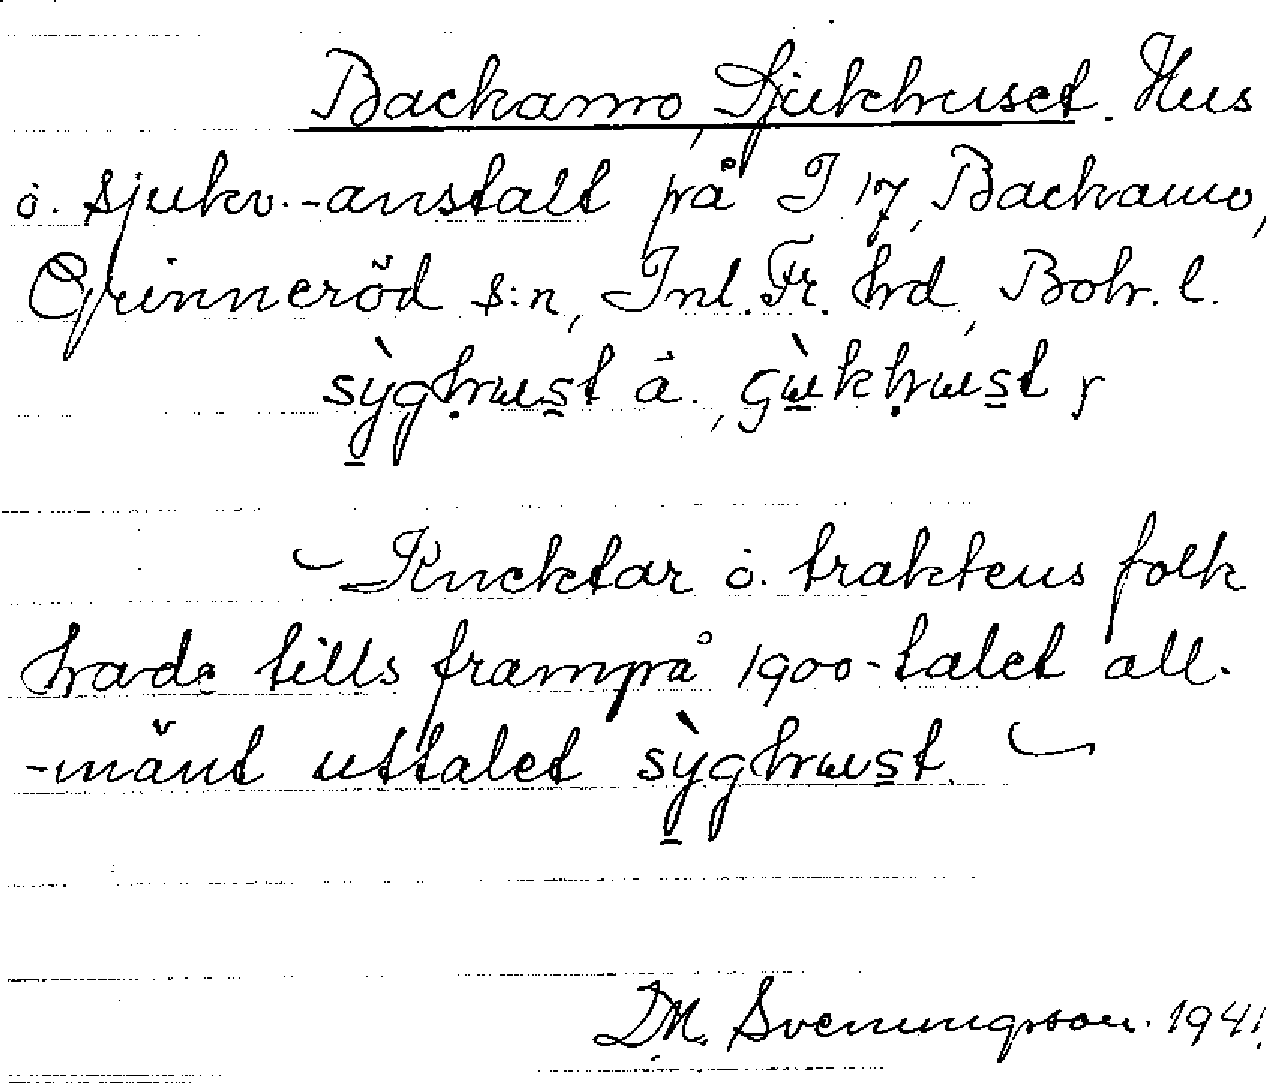 Backamo, Sjukhuset. Hus
o. sjukv.-anstalt på I 17, Backamo,
Grinneröd s:n, Inl. Fr. hrd, Boh. l.
Knektar o. traktens folk
hade tills frampå 1900-talet all-
-mänt uttalet
D.M. Svenungsson. 1941.